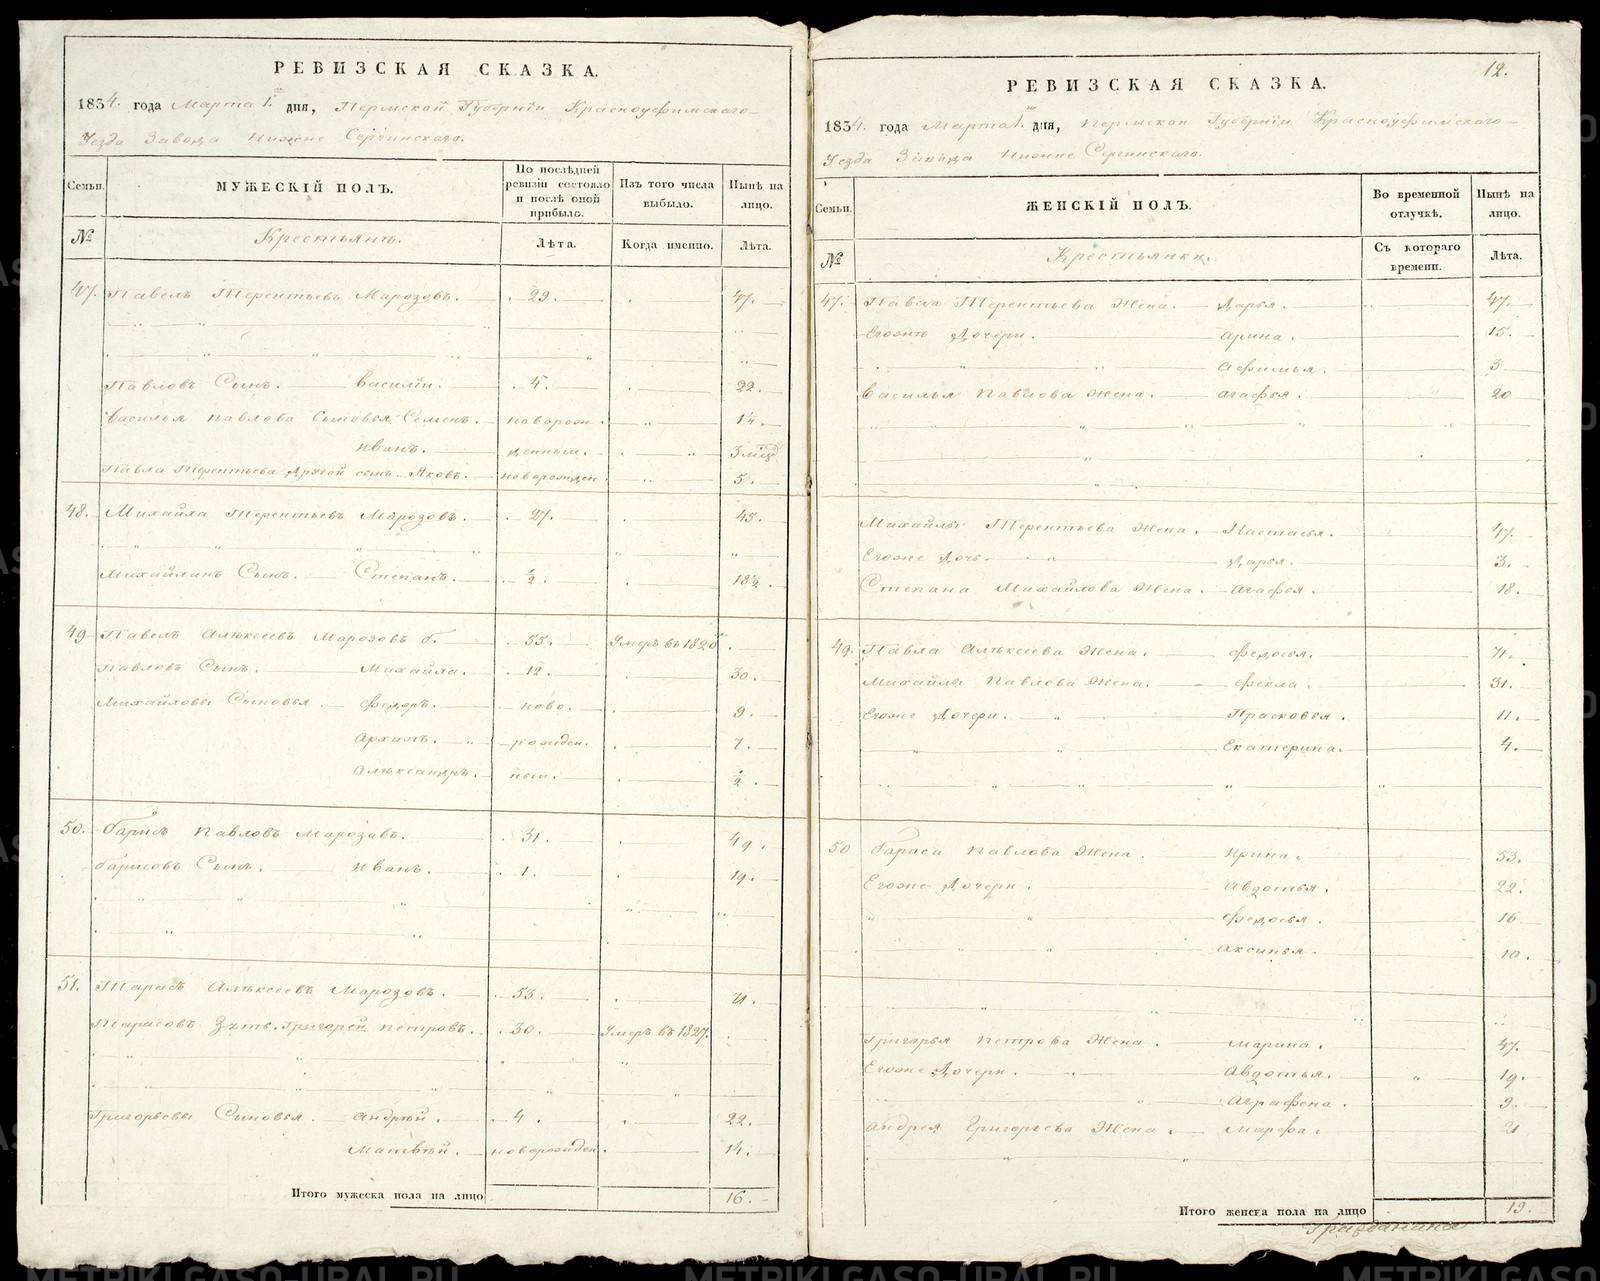 РЕВИЗСКАЯ СКАЗКА.
1834. года Марта 1. дня, Пермской Губернiи Красноуфимскаго
Уезда Завода Нижне Сергинскаго.
Семьи.
МУЖЕСКIЙ ПОЛЪ.
По послѣдней ревизiи состояло и послѣ оной прибыло.
Изъ того числа выбыло.
Нынѣ на лицо.
№
Крестьянъ.
Лѣта.
Когда именно.
Лѣта.
47. Павелъ Терентьевъ Марозовъ. 29. 47.
Павловъ Сынъ. Василiи. 4. 22.
Василья Павлова Сыновья Семенъ. новорож.
Иванъ. денныи. 3
Павла Терентьева другой сынъ Яковъ. новорожден 5.
48. Михайла Терентьевъ Марозовъ. 27. 45.
Михайлинъ Сынъ. Степанъ. ½ 18½
49 Павелъ Алексеевъ Марозовъ б. 55. Умеръ въ 1826
Павловъ Сынъ. Михайла. 12. 30.
Михайловы Сыновья. Федоръ. ново. 9.
Архипъ. рожден. 7.
Александръ. ныи. ½.
50. Барисъ Павловъ Марозовъ. 31. 49.
Барисовъ Сынъ. Иванъ. 1. 19.
51. Тарасъ Алексеевъ Марозовъ. 53. 71.
Тарасовъ Зять. Григорей Петровъ. 30. Умеръ въ 1827.
Григорьевы Сыновья. Андрѣй. 4. 22.
Матвѣй. новорожден. 14.
Итого мужеска пола на лицо 16.
12.
РЕВИЗСКАЯ СКАЗКА.
1834. года Марта 1. дня, Пермскои Губернiи Красноуфимскаго
Уезда Завода Нижне Сергинскаго.
Семьи.
ЖЕНСКIЙ ПОЛЪ.
Во временной отлучкѣ.
Нынѣ на лицо.
№
Крестьянки.
Съ котораго времени.
Лѣта.
47. Павла Терентьева Жена. Дарья. 47.
Егожъ Дочери. Арина. 15.
Афимья. 3
Василья Павлова Жена. Агафья. 20
Михайлы Терентьева Жена. Настасья. 47.
Егоже Дочь. Дарья. 3.
Степана Михайлова Жена. Агафья. 18.
49. Павла Алексеева Жена. Федосья. 71.
Михайлы Павлова Жена. Фекла. 31.
Егоже Дочери. Прасковья. 11.
Екатерина. 4.
50 Бариса Павлова Жена. Ирина. 53.
Егоже Дочери. Авдотья. 22.
Федосья. 16
Аксинья. 10.
Григорья Петрова Жена. Марина. 47.
Егоже Дочери. Авдотья. 19.
Аграфена. 9.
Андрея Григорьева Жена. Марфа. 21
Итого женска пола на лицо 19.
METRIKI.GASO-URAL.RU
METRIKI.GASO-URAL.RU